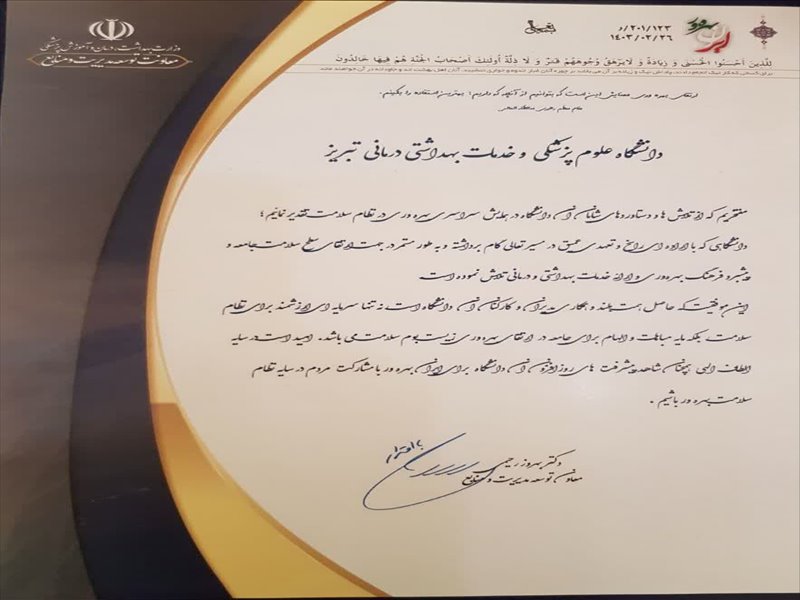 وزارت بهداشت، درمان و آموزش پزشکی
معاونت توسعه مدیریت و منابع
۲۰۱/۱۲۳/د
۱۴۰۳/۰۲/۲۶
لِلَّذِينَ أَحْسَنُوا الْحُسْنَى وَ زِيَادَةٌ وَ لَا يَرْهَقُ وُجُوهَهُمْ قَتَرٌ وَ لَا ذِلَّةٌ أُولَئِكَ أَصْحَابُ الْجَنَّةِ هُمْ فِيهَا خَالِدُونَ
ارتقای بهره وری معنایش این است که بتوانیم از آنچه که داریم؛ بهترین استفاده را بکنیم.
دانشگاه علوم پزشکی و خدمات بهداشتی درمانی تبریز
مفتخریم که از تلاش ها و دستاوردهای شایان آن دانشگاه در همایش سراسری بهره وری در نظام سلامت تقدیر نمائیم؛
دانشگاهی که با اراده ای راسخ و تعهدی عمیق در مسیر تعالی گام برداشته و به طور مستمر در جهت ارتقای سطح سلامت جامعه و
پیشبرد فرهنگ بهره وری و ارائه خدمات بهداشتی و درمانی تلاش نموده است
این موفقیت که حاصل همت بلند و همکاری مدیران و کارکنان آن دانشگاه است نه تنها سرمایه ای ارزشمند برای نظام
سلامت، بلکه مایه مباهات و الهام برای جامعه در ارتقای بهره وری زیست بوم سلامت می باشد. امید است در سایه
الطاف الهی همچنان شاهد پیشرفت های روزافزون آن دانشگاه برای ایران بهره ور با مشارکت مردم در سایه نظام
سلامت بهره ور باشیم.
با احترام
دکتر بهروز رحیمی
معاون توسعه مدیریت و منابع